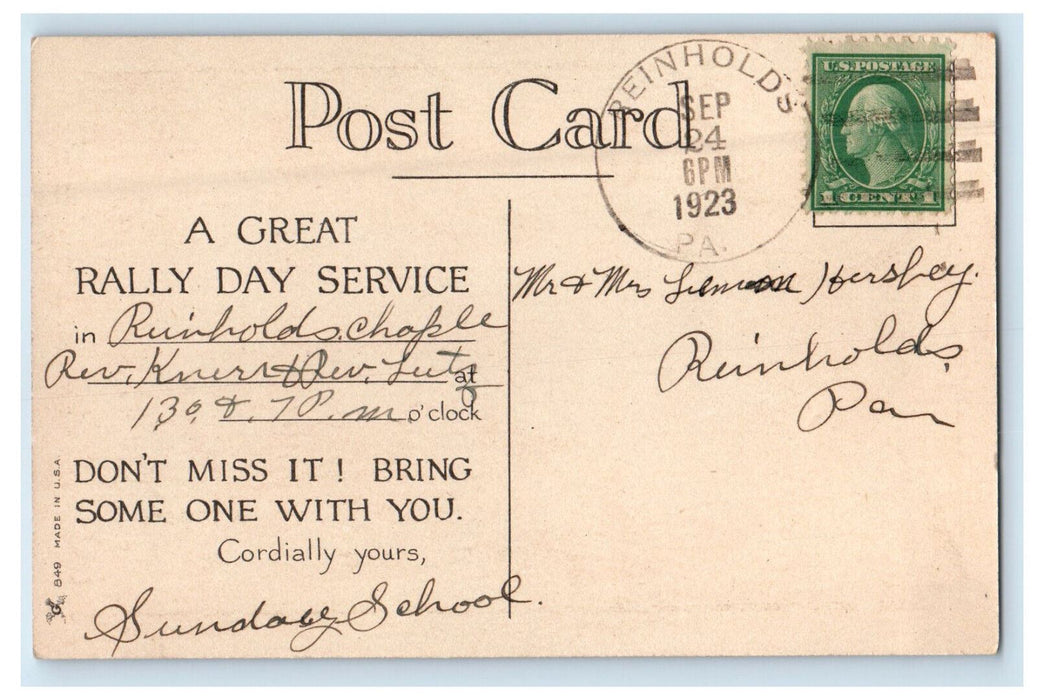 Post Card
REINHOLDS
SEP
24
6PM
1923
PA.
U.S.POSTAGE
1 CENT 1
A GREAT
RALLY DAY SERVICE
in Reinholds. Chaple
Rev. Knerr & Rev. Lutz at
130 & 7 P.m. o'clock
DON'T MISS IT! BRING
SOME ONE WITH YOU.
Cordially yours,
Sunday School.
849 MADE IN U.S.A.
Mr & Mrs Hershey.
Reinholds,
Pa